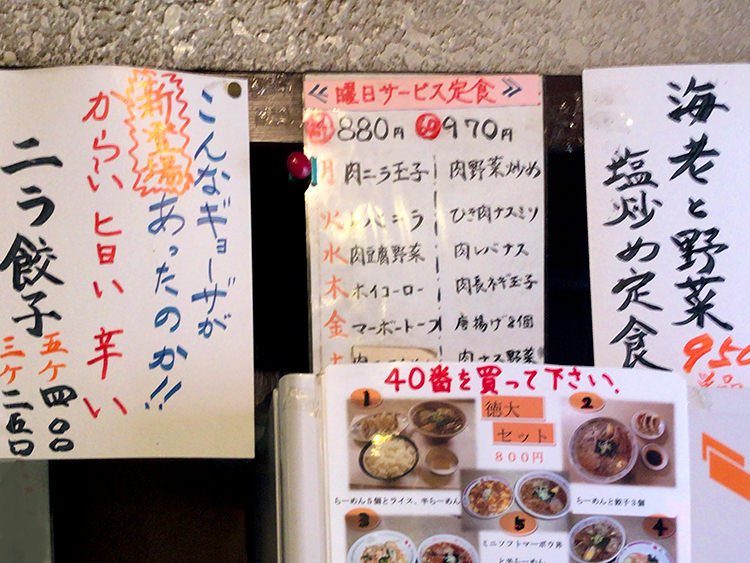 こんなギョーザが
あったのか!!
新登場
からい旨い辛い
ニラ餃子
五ケ四〇〇
三ケ二五〇
≪曜日サービス定食≫
880円
970円
月 肉ニラ玉子 肉野菜炒め
火 レバニラ ひき肉ナスミソ
水 肉豆腐野菜 肉レバナス
木 ホイコーロー 肉長ネギ玉子
金 マーボートーフ 唐揚げ8個
土 肉ナス野菜
海老と野菜
塩炒め定食
950
40番を買って下さい.
徳大
セット
800円
1
2
らーめん5個とライス、半らーめん
らーめんと餃子3個
3
5
4
ミニソフトマーボウ丼
と半らーめん